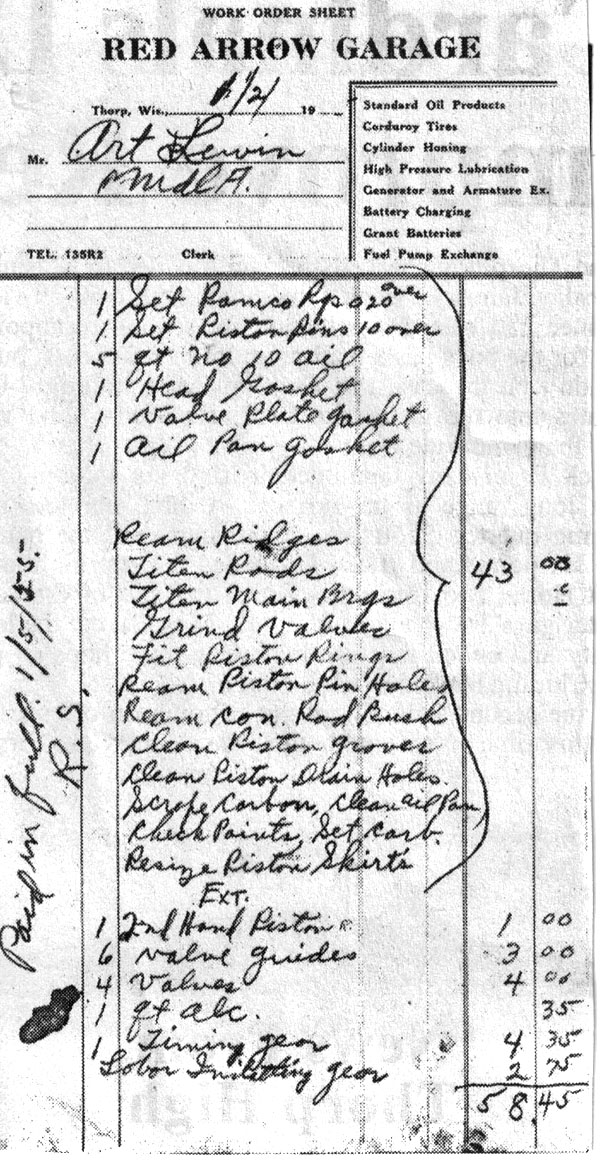 WORK ORDER SHEET
RED ARROW GARAGE
Thorp, Wis., 1/2/ 19
Mr. Art Lewin
Mdl A.
TEL. 135R2 Clerk
Standard Oil Products
Corduroy Tires
Cylinder Honing
High Pressure Lubrication
Generator and Armature Ex.
Battery Charging
Grant Batteries
Fuel Pump Exchange
1 Set Ramco Rp 020 over
1 Set Piston Pins 10 over
5 qt No 10 Oil
1 Head Gasket
1 Valve Plate gasket
1 Oil Pan gasket
Ream Ridges
Titen Rods
Titen Main Brgs
Grind Valves
Fit Piston Rings
Ream Piston Pin Holes
Ream Con. Rod Bush
Clean Piston groves
Clean Piston Drain Holes.
Scrape Carbon, Clean Oil Pan
Check Points, Set Carb.
Resize Piston Skirts
43 00
Ext.
1 2nd Hand Piston 1 00
6 Valve guides 3 00
4 Valves 4 00
1 qt Alc. 35
1 Timing gear 4 35
Labor Installing gear 2 75
58.45
Paid in full. 1/5/55.
R.S.